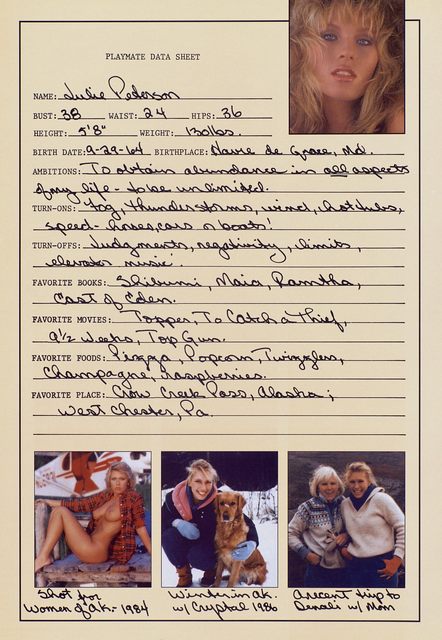 PLAYMATE DATA SHEET
NAME: Julie Peterson
BUST: 38 WAIST: 24 HIPS: 36
HEIGHT: 5'8" WEIGHT: 130lbs.
BIRTH DATE: 9-29-64 BIRTHPLACE: Havre de Grace, Md.
AMBITIONS: To obtain abundance in all aspects
of my life - to be unlimited.
TURN-ONS: Fog, thunderstorms, wind, hot tubs,
speed - horses, cars & boats!
TURN-OFFS: Judgments, negativity, limits,
elevator music.
FAVORITE BOOKS: Shibumi, Maia, Ramtha,
East of Eden.
FAVORITE MOVIES: Topper, To Catch a Thief,
9½ Weeks, Top Gun.
FAVORITE FOODS: Pizza, Popcorn, Twizzlers,
Champagne, raspberries.
FAVORITE PLACE: Crow Creek Pass, Alaska;
West Chester, Pa.
Shot for
Women of Ak. - 1984
Winter in Ak.
w/ Crystal 1986
A recent trip to
Denali w/ Mom